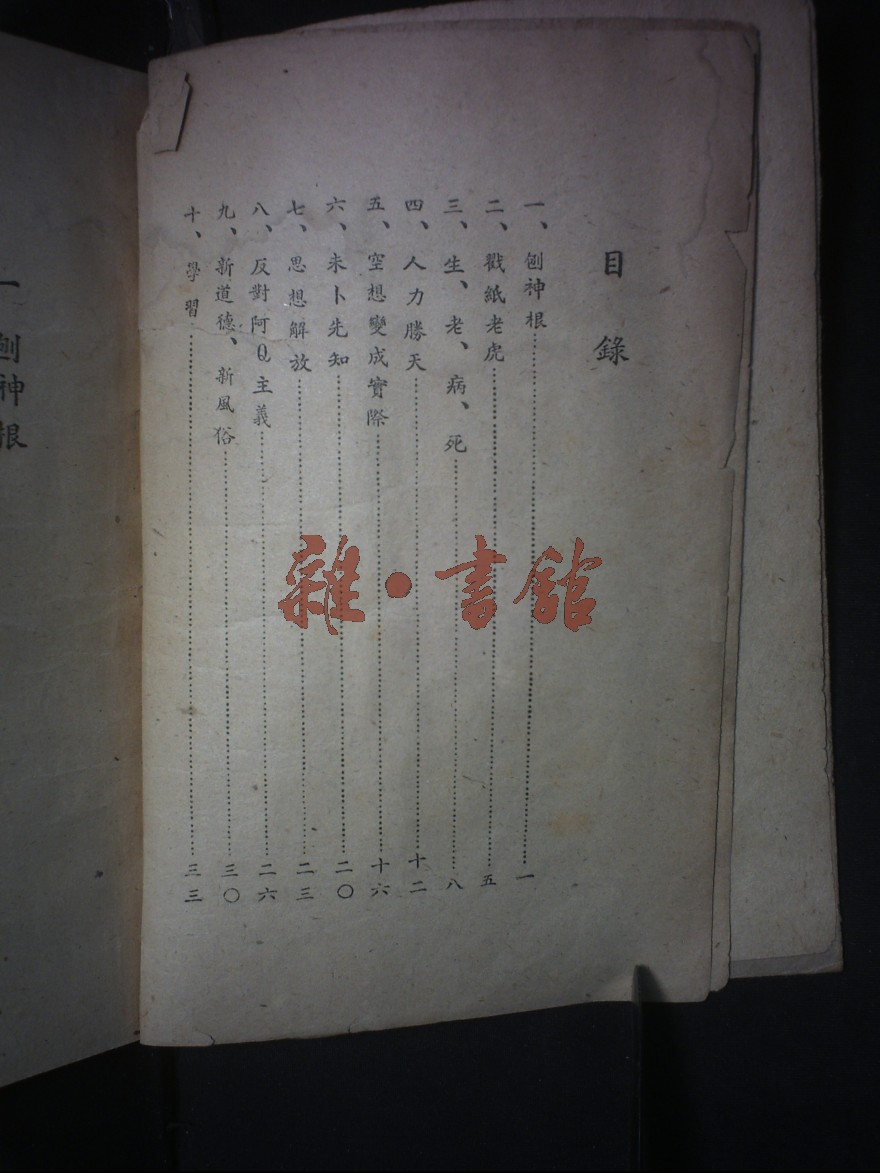 目錄
一、刨神根……一
二、戳紙老虎……五
三、生、老、病、死……八
四、人力勝天……十二
五、空想變成實際……十六
六、未卜先知……二〇
七、思想解放……二三
八、反對阿Q主義……二六
九、新道德、新風俗……三〇
十、學習……三三
一 刨神根
雜·書館